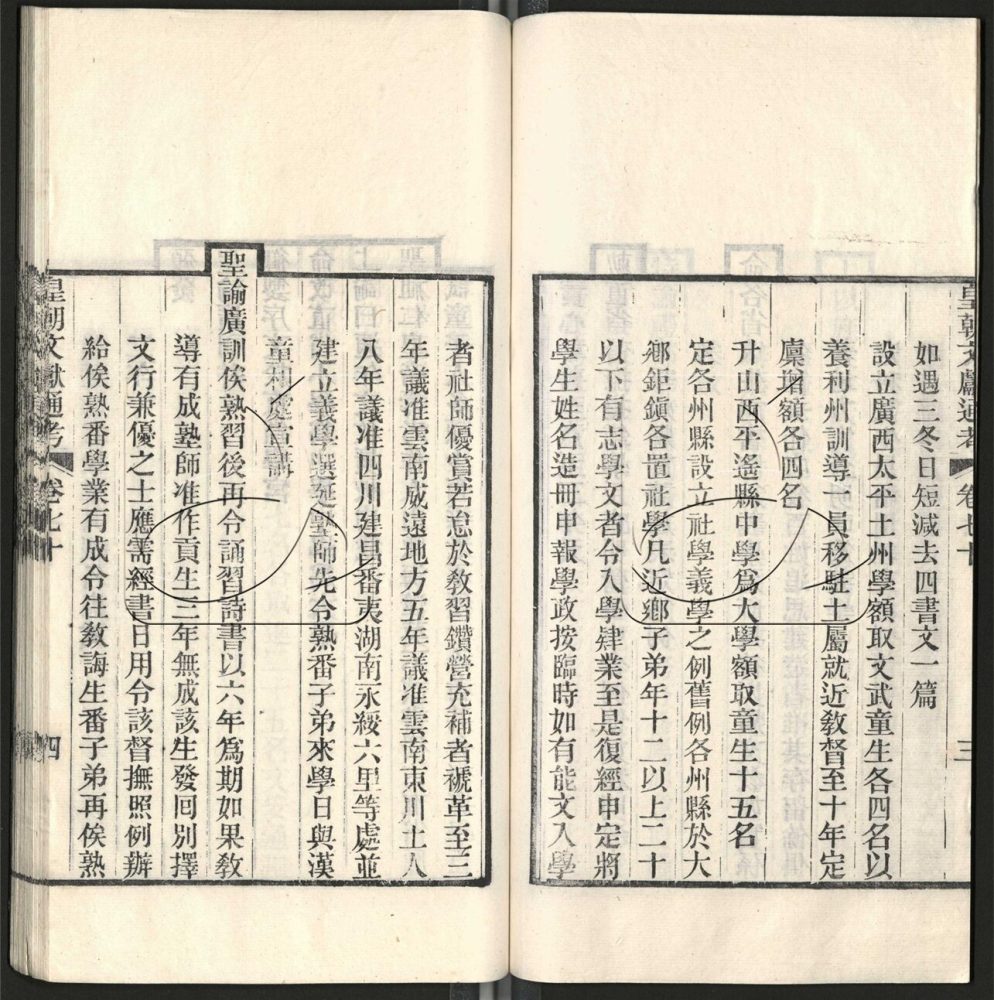 皇朝文獻通考 卷七十 三
如遇三冬日短減去四書文一篇
設立廣西太平土州學額取文武童生各四名以
養利州訓導一員移駐土屬就近敎督至十年定
廩增額各四名
升山西平遙縣中學爲大學額取童生十五名
定各州縣設立社學義學之例舊例各州縣於大
鄉鉅鎭各置社學凡近鄉子弟年十二以上二十
以下有志學文者令入學肄業至是復經申定將
學生姓名造冊申報學政按臨時如有能文入學
者社師優賞若怠於敎習鑽營充補者褫革至三
年議准雲南威遠地方五年議准雲南東川土人
八年議准四川建昌番夷湖南永綏六里等處並
建立義學選延塾師先令熟番子弟來學日與漢
童相處宣講
聖諭廣訓俟熟習後再令誦習詩書以六年爲期如果敎
導有成塾師准作貢生三年無成該生發回別擇
文行兼優之士應需經書日用令該督撫照例辦
給俟熟番學業有成令往敎誨生番子弟再俟熟
皇朝文獻通考 卷七十 四